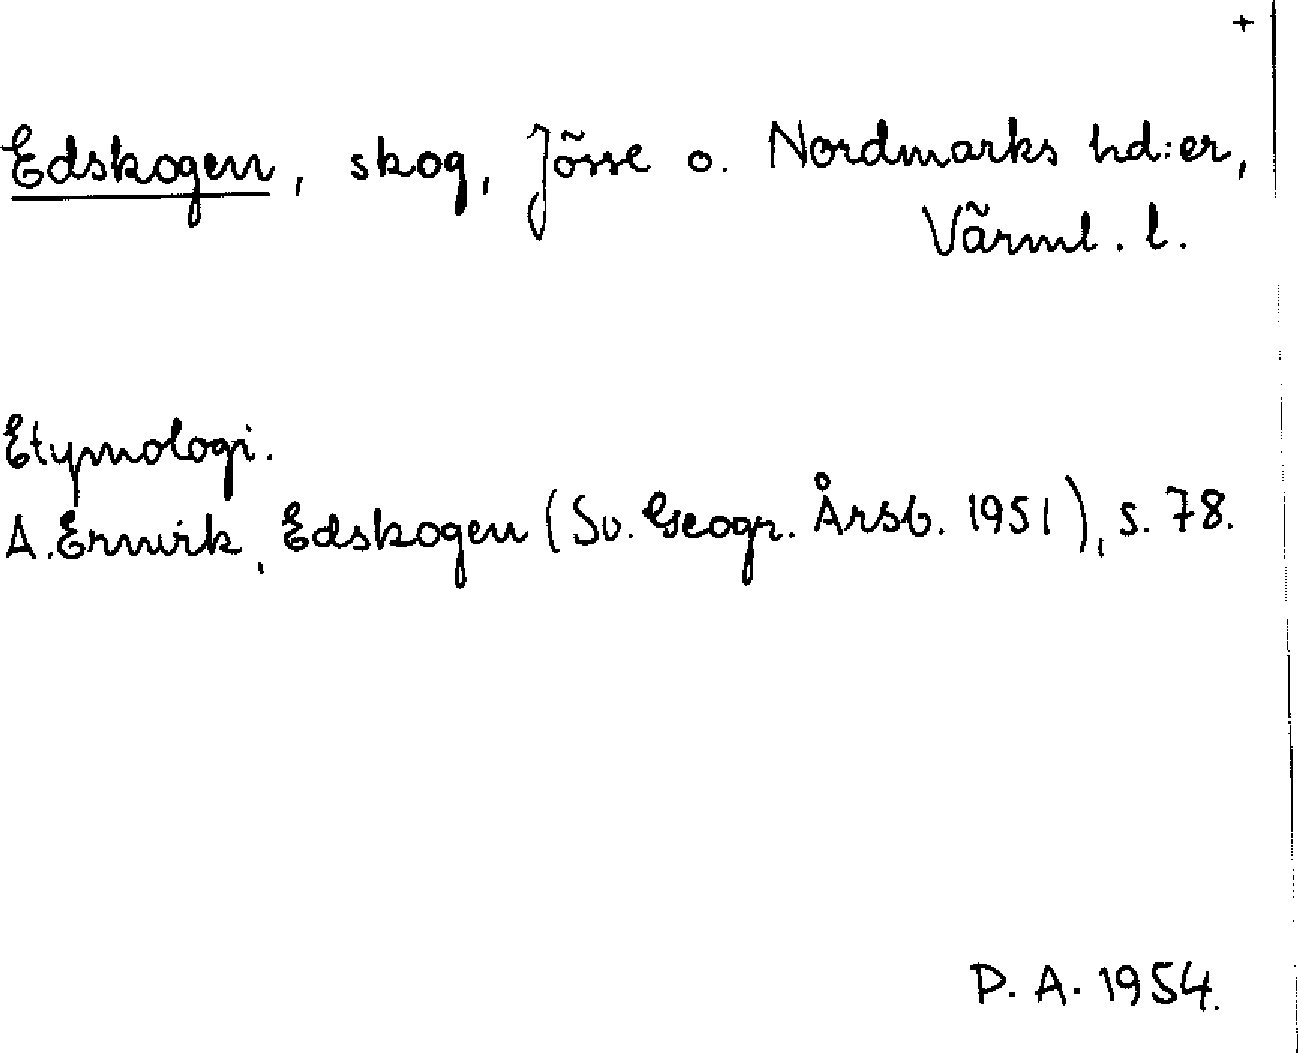 +
Edskogen, skog, Jösse o. Nordmarks hd:er,
Värml. l.
Etymologi.
A. Ernvik, Edskogen (Sv. Geogr. Årsb. 1951), s. 78.
P. A. 1954.